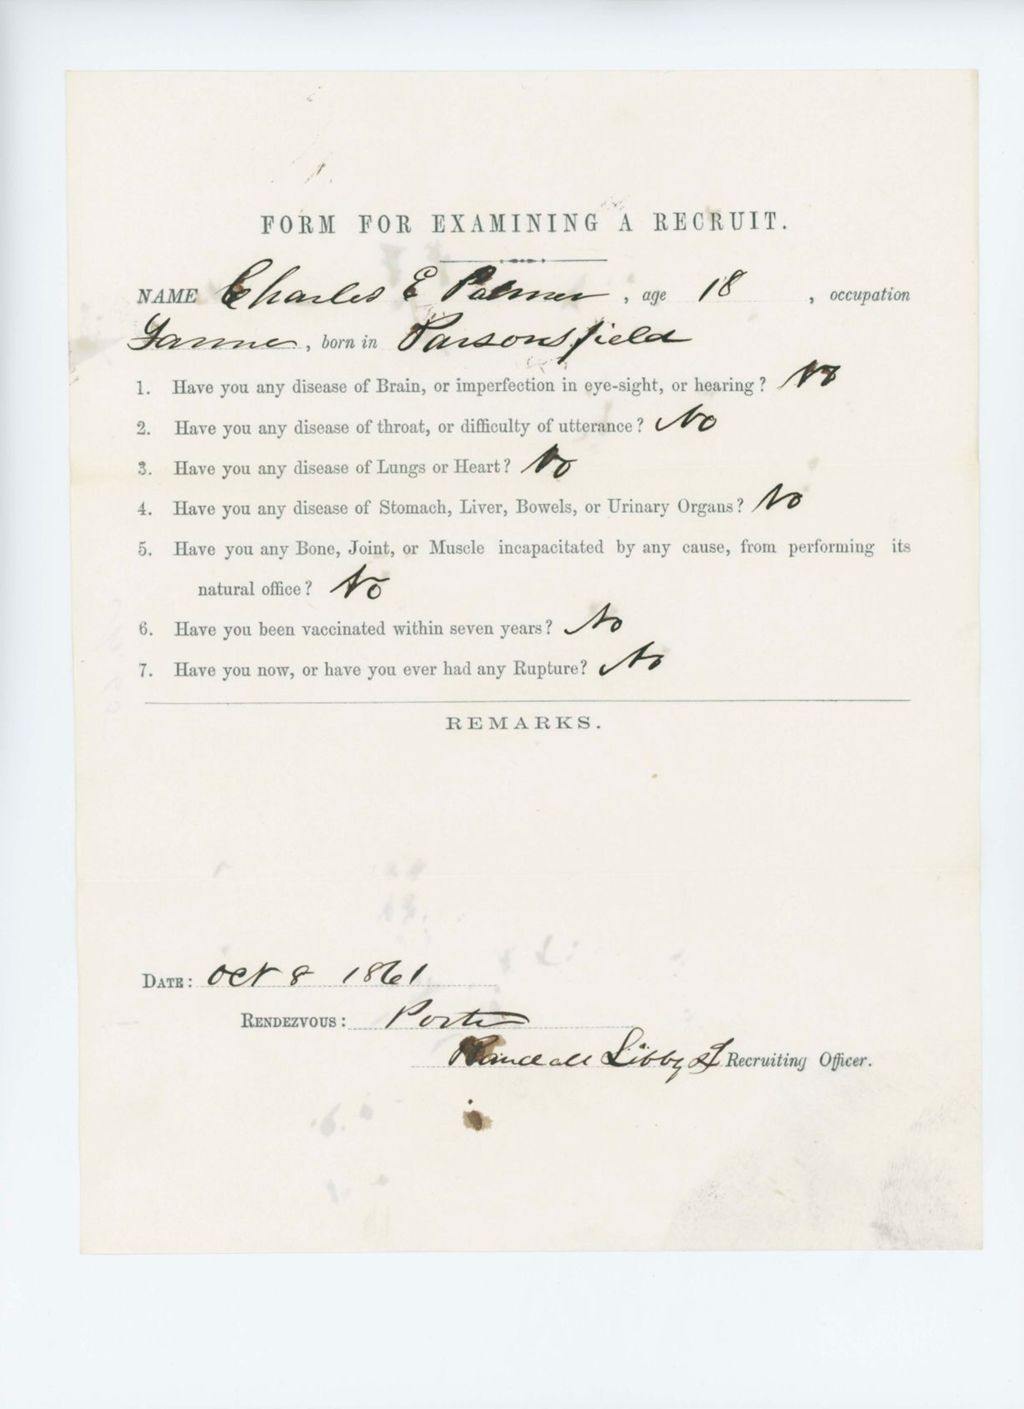 FORM FOR EXAMINING A RECRUIT.
NAME Charles E Palmer , age 18 , occupation
Farmer , born in Parsonsfield
1. Have you any disease of Brain, or imperfection in eye-sight, or hearing? No
2. Have you any disease of throat, or difficulty of utterance? No
3. Have you any disease of Lungs or Heart? No
4. Have you any disease of Stomach, Liver, Bowels, or Urinary Organs? No
5. Have you any Bone, Joint, or Muscle incapacitated by any cause, from performing its
natural office? No
6. Have you been vaccinated within seven years? No
7. Have you now, or have you ever had any Rupture? No
REMARKS.
DATE: Oct 8 1861
RENDEZVOUS: Porter
Randall Libby 2d Recruiting Officer.